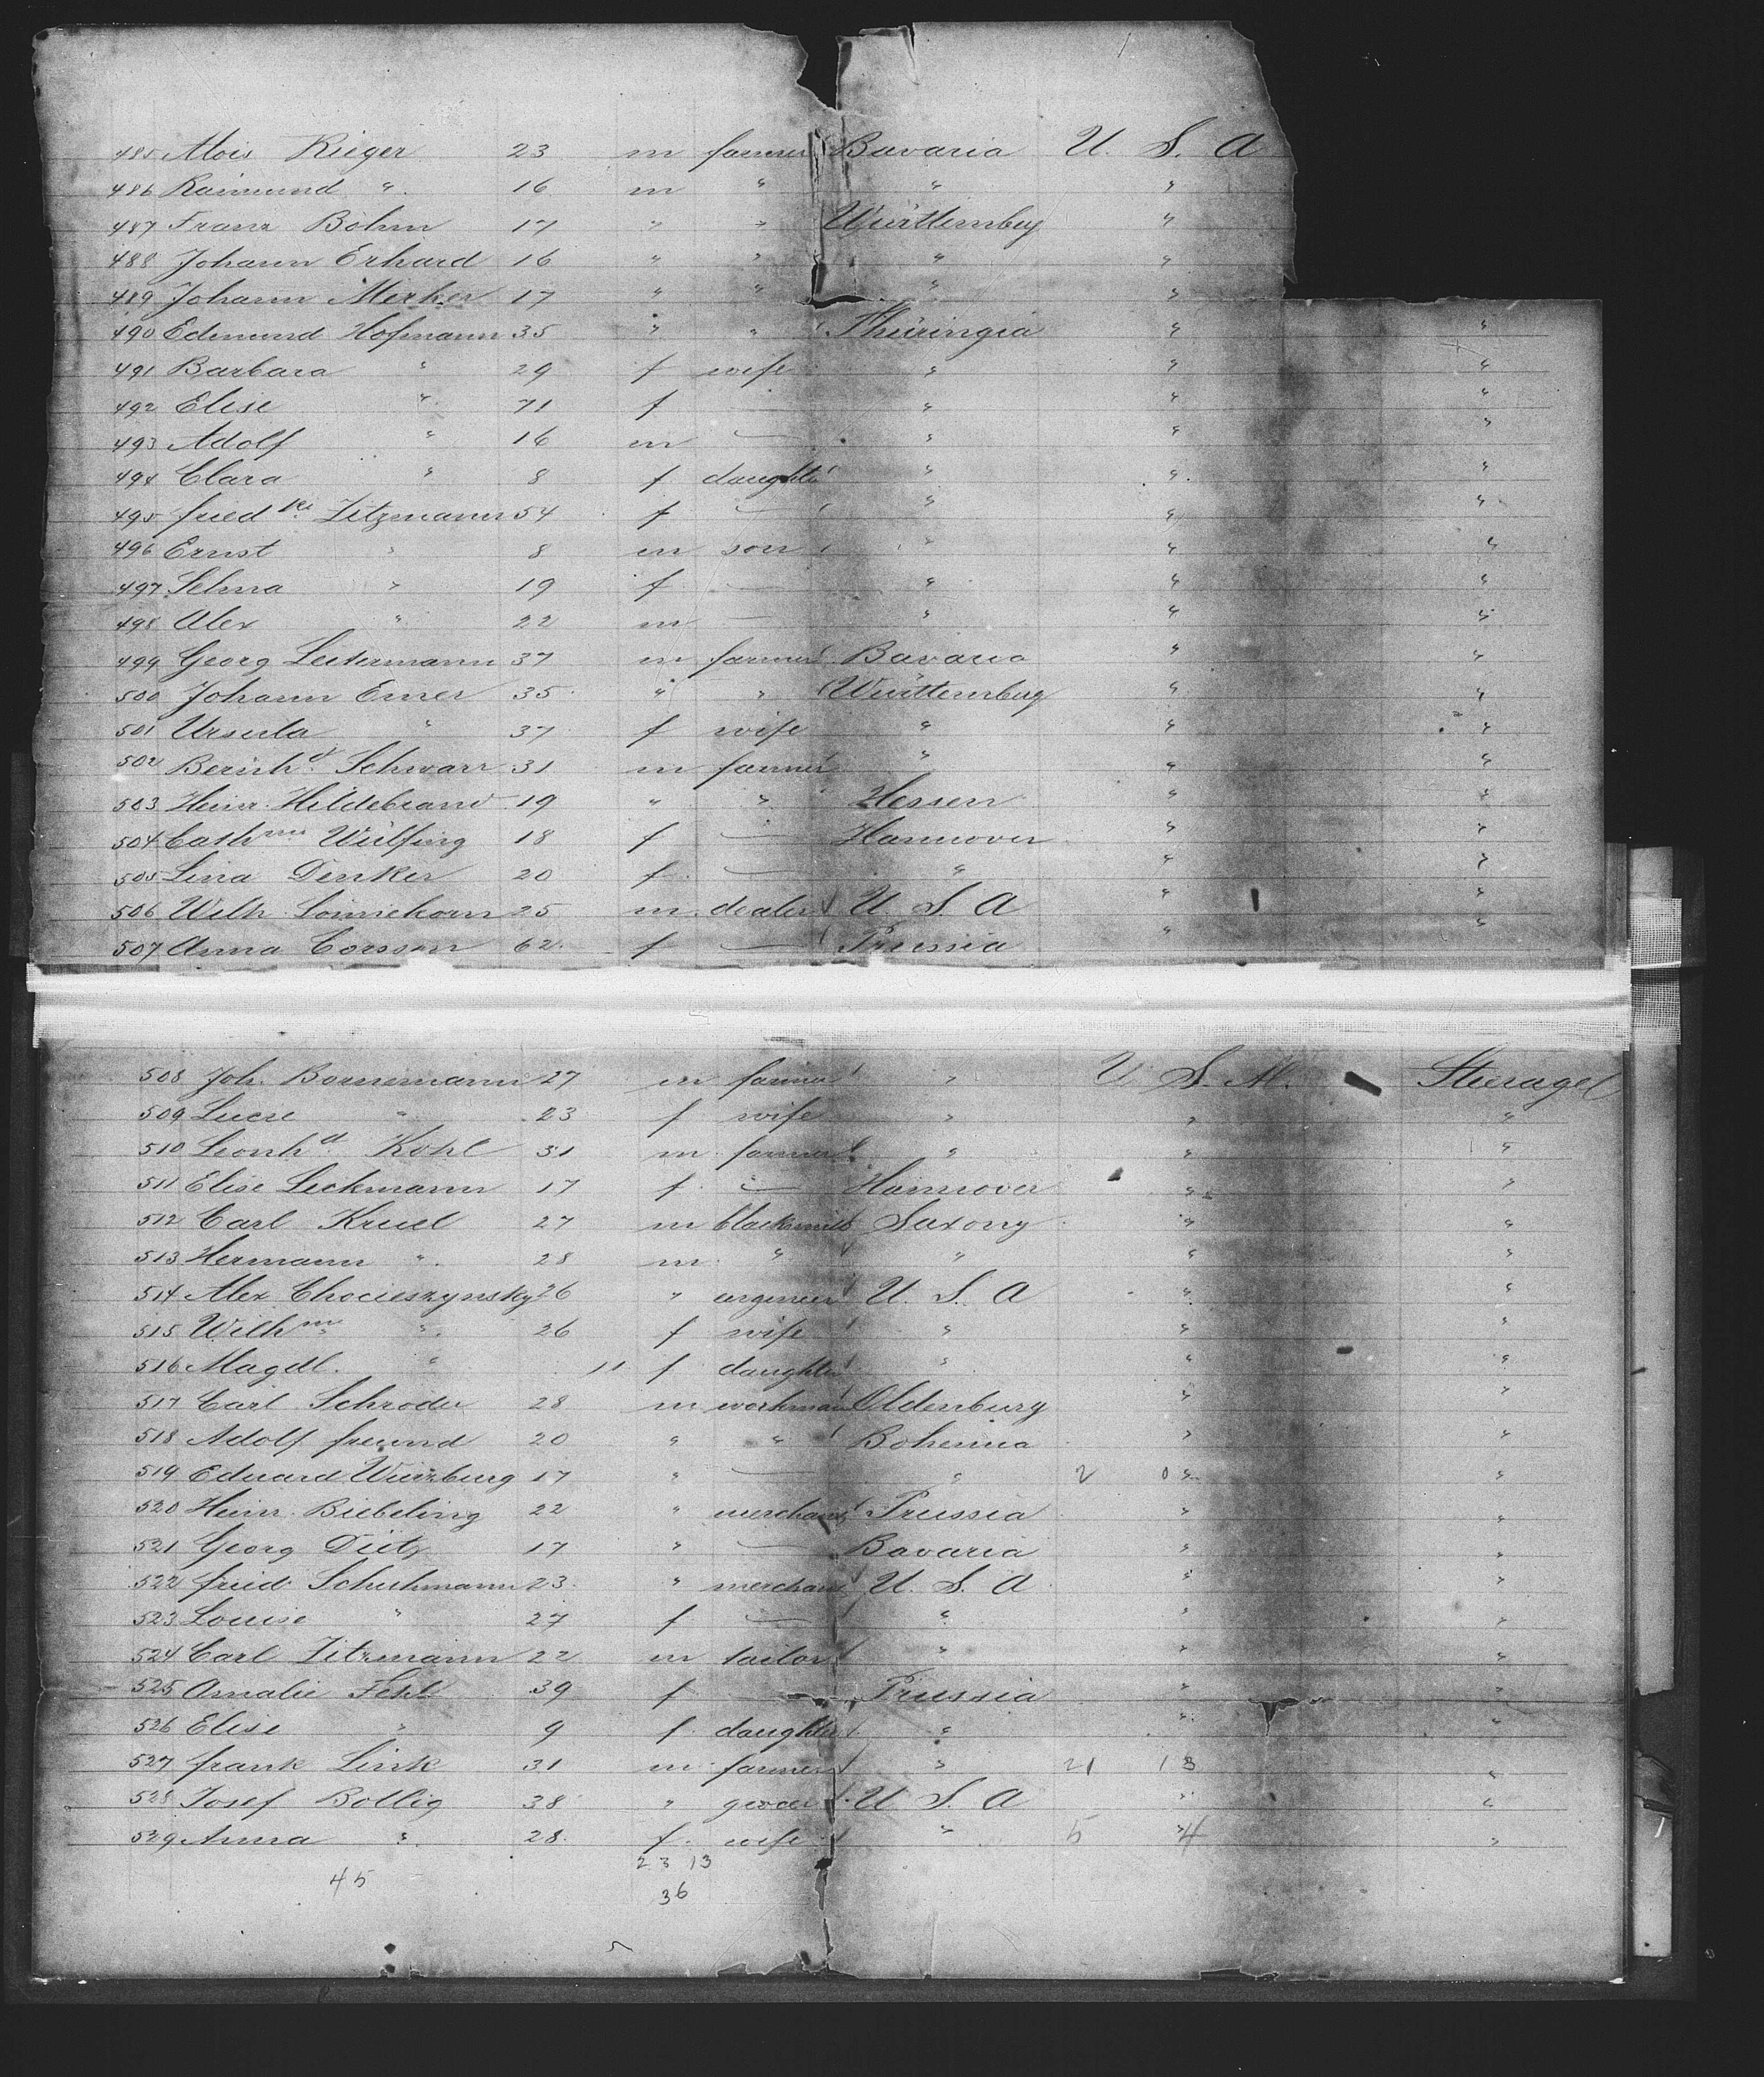 485 Alois Rieger 23 m farmer Bavaria U. S. A
486 Raimund " 16 m " " "
487 Franz Böhm 17 " " Württemberg "
488 Johann Erhard 16 " " " "
489 Johann Merker 17 " " " "
490 Edmund Hofmann 35 " " Thüringia " "
491 Barbara " 29 f wife " " "
492 Elise " 71 f — " " "
493 Adolf " 16 m — " " "
494 Clara " 8 f daughter " " "
495 Friedke Zitzmann 54 f — " " "
496 Ernst " 8 m son " " "
497 Selma " 19 f — " " "
498 Alex " 22 m — " " "
499 Georg Leutermann 37 m farmer Bavaria " "
500 Johann Emer 35 " " Württemberg " "
501 Ursula " 37 f wife " " "
502 Bernhd. Schwarz 31 m farmer " " "
503 Heinr. Hildebrand 19 " " Hessen " "
504 Cathne Wülfing 18 f — Hannover " "
505 Lina Denker 20 f — " " "
506 Wilh. 25 m dealer U. S. A " "
507 Anna Corssen 62 f — Prussia " "
508 Joh. Bornemann 27 m farmer " U. S. A. Steerage
509 Lucie " 23 f wife " " "
510 Leonhd. Kohl 31 m farmer " " "
511 Elise Leckmann 17 f — Hannover " "
512 Carl Kruel 27 m blacksmith Saxony " "
513 Hermann " 28 m " " " "
514 Alex Chocieszynsky 26 " engineer U. S. A " "
515 Wilhm " 26 f wife " " "
516 Magdl. " 11 f daughter " " "
517 Carl Schröder 28 m workman Oldenburg " "
518 Adolf Freund 20 " " Bohemia " "
519 Eduard Würzburg 17 " — " 2 0 " "
520 Heinr. Biebeling 22 " merchant Prussia " "
521 Georg Dietz 17 " — Bavaria " "
522 Fried. Schuhmann 23 " merchant U. S. A " "
523 Louise " 27 f — " " "
524 Carl Zitzmann 22 m tailor " " "
525 Amalie Fehl 39 f — Prussia " "
526 Elise " 9 f daughter " " "
527 Frank Link 31 m farmer " 21 13 "
528 Josef Bollig 38 " grocer U. S. A " "
529 Anna " 28 f wife " 5 4 "
23 13
45
36